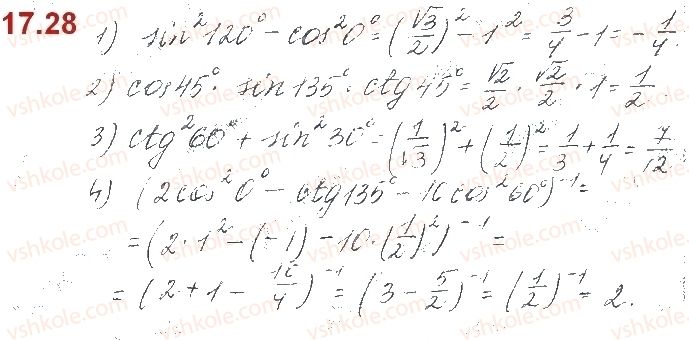 17.28
1) sin²120° - cos²0° = (√3/2)² - 1² = 3/4 - 1 = -1/4.
2) cos45° · sin135° · ctg45° = √2/2 · √2/2 · 1 = 1/2.
3) ctg²60° + sin²30° = (1/√3)² + (1/2)² = 1/3 + 1/4 = 7/12
4) (2cos²0° - ctg135° - 10cos²60°)⁻¹ =
= (2·1² - (-1) - 10·(1/2)²)⁻¹ =
= (2 + 1 - 10/4)⁻¹ = (3 - 5/2)⁻¹ = (1/2)⁻¹ = 2.
vshkole.com